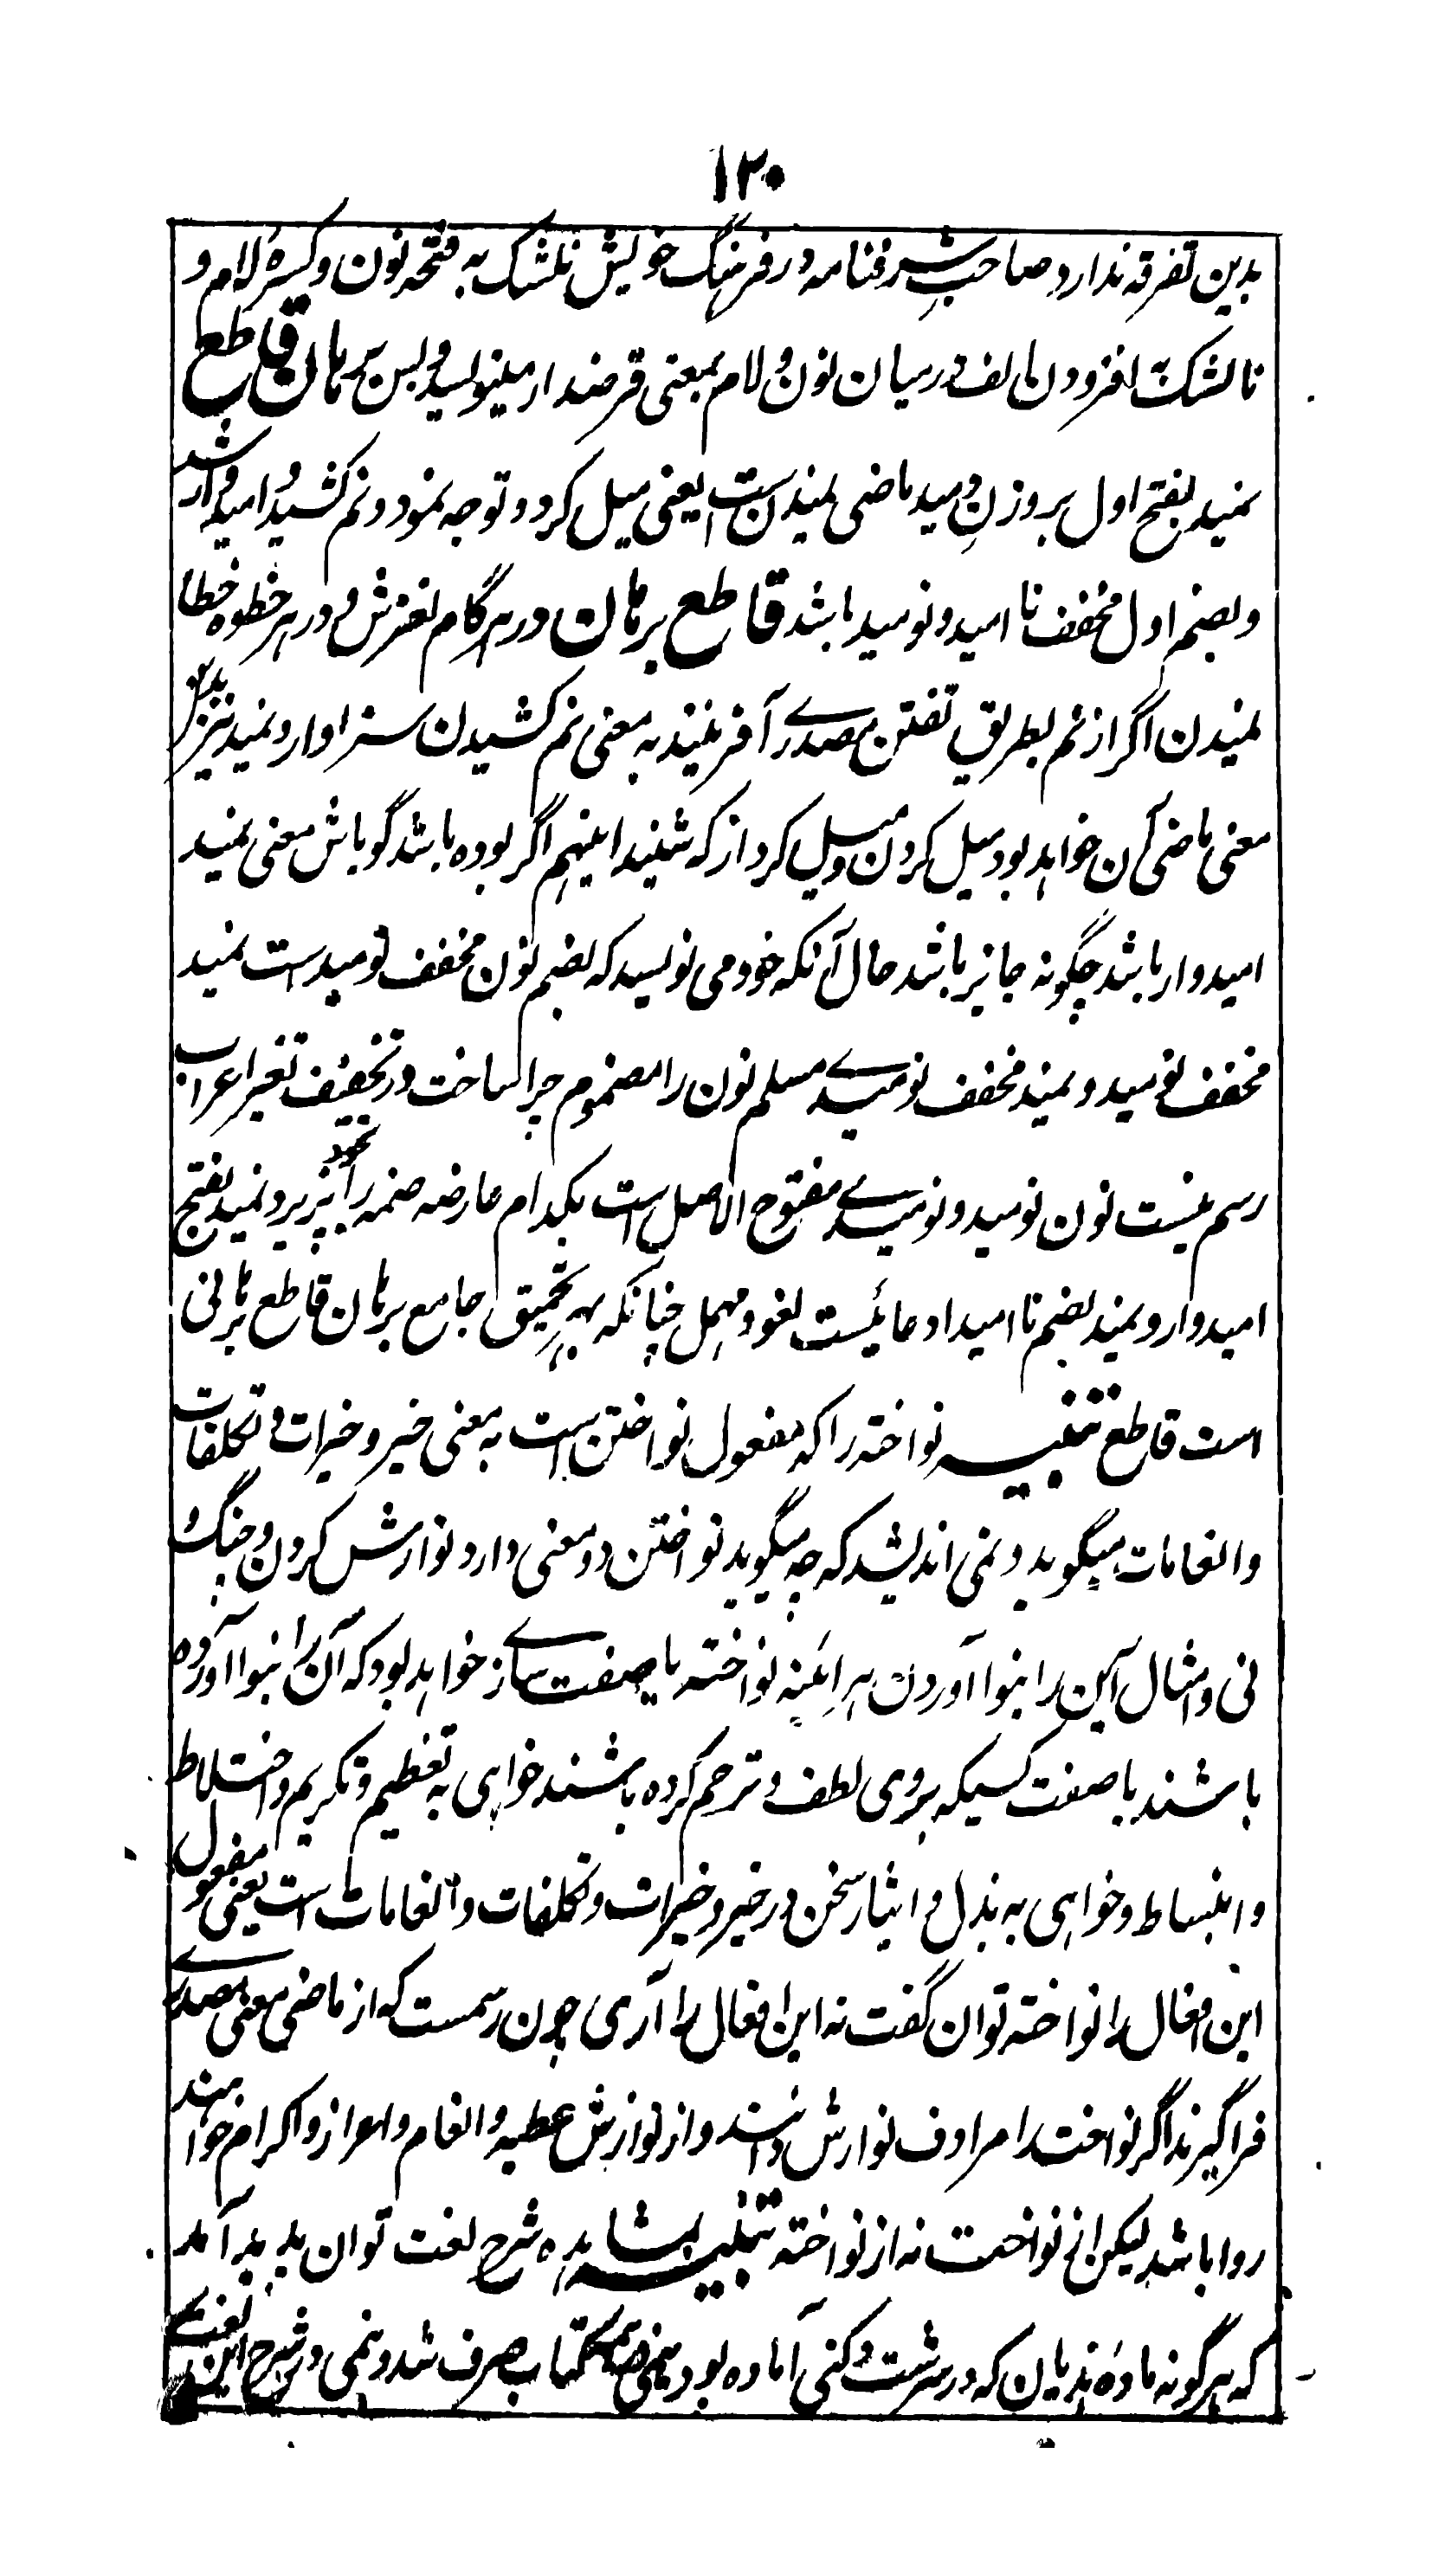 ۱۲۰
بدین تفرقه ندارد و صاحب شرفنامه در فرهنگ خویش نلشک به فتحه نون و کسره لام و
نالشک بافزودن الف درمیان نون و لام بمعنی قرضدار مینویسد و بس برهان قاطع
نمید بفتح اول بر وزن دمید ماضی نمیدن است یعنی میل کرد و توجه نمود و نم کشید و امیدوار شد
و بضم اول مخفف ناامید و نومید باشد قاطع برهان در هر گام لغزش و در هر خطوه خطا
نمیدن اگر از نم بطریق تفتن مصدرے آفرینند به معنی نم کشیدن سزاوار و نمید نیز بدین
معنی ماضی آن خواهد بود میل کردن و میل کرد از که شنید اینهم اگر بوده باشد گو باش معنی نمید
امیدوار باشد چگونه جایز باشد حال آنکه خود می نویسد که بضم نون مخفف نومیدست نمید
مخفف نومید و نمید مخفف نومیدے مسلم نون را مضموم چرا ساخت در تخفیف تغیر اعراب
رسم نیست نون نومید و نومیدے مفتوح الاصل است بکدام عارضه ضمه را بخود پذیرد نمید بفتح
امیدوار و نمید بضم ناامید ادعائیست لغو و مهمل چنانکه بهر تحمیق جامع برهان قاطع برهانی
است قاطع تنبیه نواخته را که مفعول نواختن است به معنی خیر و خیرات و تکلفات
و انعامات میگوید و نمی اندیشد که چه میگوید نواختن دو معنی دارد نوازش کردن و چنگ و
نی و امثال این را بنوا آوردن هرآئینه نواخته یا صفت سازے خواهد بود که آن را بنوا آورده
باشند یا صفت کسیکه بروی لطف و ترحم کرده باشند خواهی به تعظیم و تکریم و اختلاط
و انبساط و خواهی به بذل و ایثار سخن در خیر و خیرات و تکلفات و انعامات است یعنی مفعول
این افعال را نواخته توان گفت نه این افعال را آری چون رسمست که از ماضی معنی مصدرے
فراگیرند اگر نواخت را مرادف نوازش دانند و از نوازش عطیه و انعام و اعزاز و اکرام خواهند
روا باشد لیکن از نواخت نه از نواخته تنبیه بمشاهده شرح لغت توان پدید آمد
که هرگونه ماده هذیان که در سرشت دکنی آماده بود نیمی کتاب صرف شد و نیمی در شرح این لغت